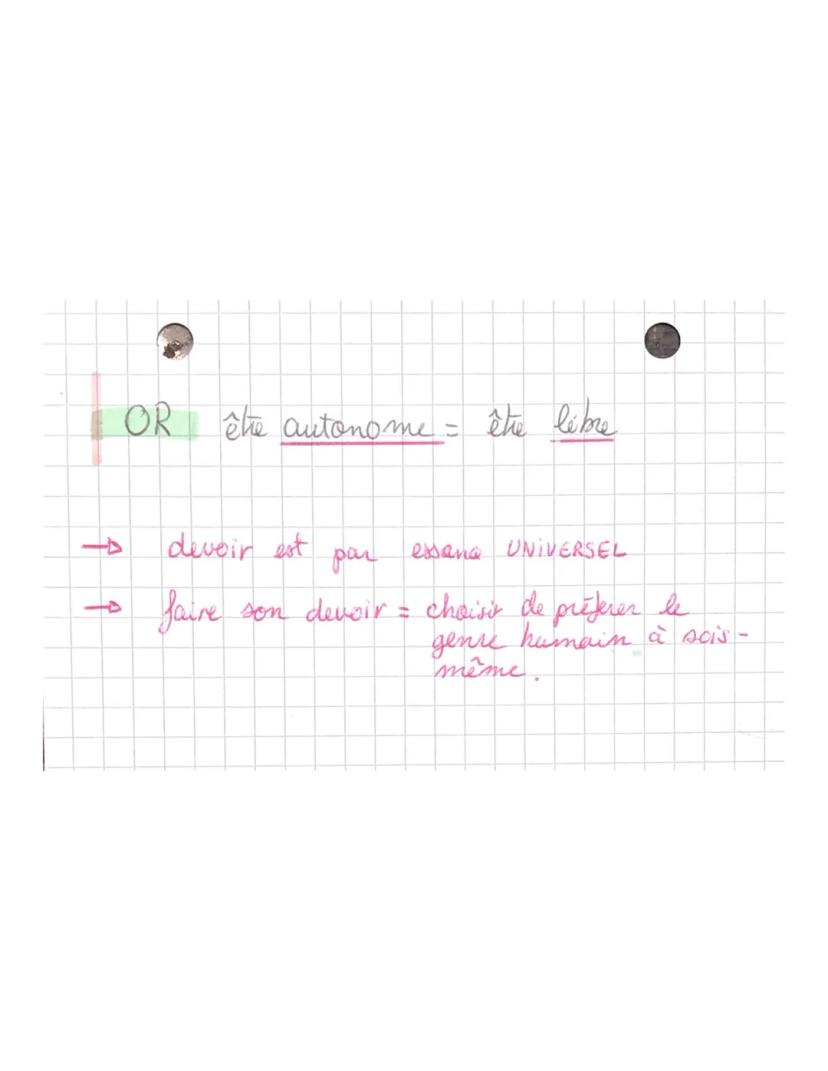 OR être autonome = être libre
→ devoir est par essence UNIVERSEL
→ faire son devoir = choisir de préférer le
genre humain à sois-
même.